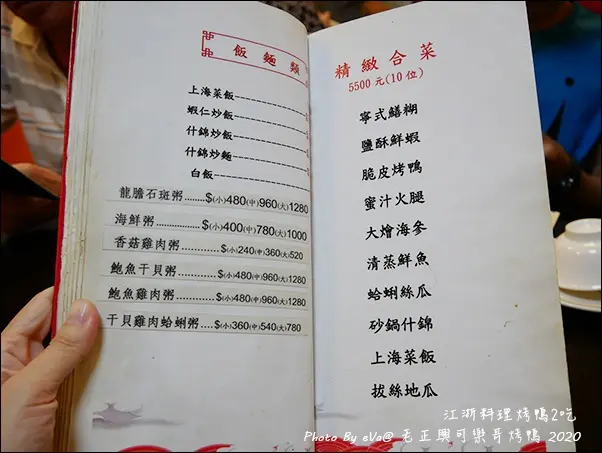 飯麵類
上海菜飯
蝦仁炒飯
什錦炒飯
什錦炒麵
白飯
龍膽石斑粥........$(小)480(中)960(大)1280
海鮮粥............$(小)400(中)780(大)1000
香菇雞肉粥..........$(小)240(中)360(大)520
鮑魚干貝粥..........$(小)480(中)960(大)1280
鮑魚雞肉粥..........$(小)480(中)960(大)1280
干貝雞肉蛤蜊粥....$(小)360(中)540(大)780
精緻合菜
5500元(10位)
寧式鱔糊
鹽酥鮮蝦
脆皮烤鴨
蜜汁火腿
大燴海參
清蒸鮮魚
蛤蜊絲瓜
砂鍋什錦
上海菜飯
拔絲地瓜
江浙料理烤鴨2吃
Photo By eVa@ 老正興可樂哥烤鴨 2020